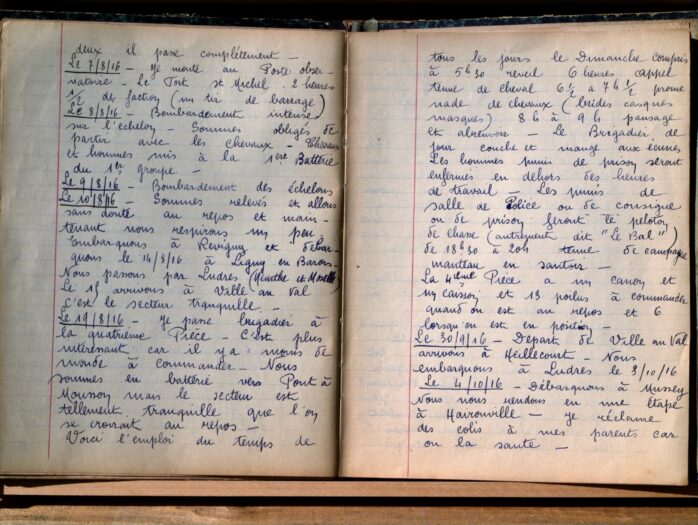 deux il passe complètement —
Le 7/8/16 — Je monte au Poste obser-
vatoire — Le Tort St Michel. 2 heures
1/2 de faction (un tir de barrage)
Le 8/8/16 — Bombardement intense
sur l'échelon — Sommes obligés de
partir avec les chevaux — Chevaux
et hommes mis à la 1ère Batterie
du 1er groupe —
Le 9/8/16 — Bombardement des échelons
Le 10/8/16 — Sommes relevés et allons
sans doute au repos et main-
tenant nous respirons un peu
Embarquons à Revigny et débar-
quons le 14/8/16 à Ligny en Barois.
Nous passons par Ludres (Meurthe et Moselle)
Le 15 arrivons à Ville au Val
C'est le secteur tranquille —
Le 19/8/16 — Je passe brigadier à
la quatrième Pièce — C'est plus
intéressant car il y a moins de
monde à commander — Nous
sommes en batterie vers Pont à
Mousson mais le secteur est
tellement tranquille que l'on
se croirait au repos —
Voici l'emploi du temps de
tous les jours le Dimanche compris
à 5h30 reveil 6 heures appel
tenue de cheval 6 1/2 à 7h 1/2 prome
nade de chevaux (brides casques
masques) 8h à 9h pansage
et abreuvoir — Le Brigadier de
jour couche et mange aux écuries
Les hommes punis de prison seront
enfermés en dehors des heures
de travail — Les punis de
salle de Police ou de consigne
ou de prison feront le peloton
de chasse (autrement dit "Le Bal")
de 18h30 à 20h tenue de campagne
manteau en sautoir —
La 4ème Pièce a un canon et
un caisson et 13 poilus à commander
quand on est au repos et 6
lorsqu'on est en position —
Le 30/9/16 — Départ de Ville au Val
arrivons à Heillecourt — Nous
embarquons à Ludres le 3/10/16
Le 4/10/16 — Débarquons à Mussey
Nous nous rendons en une étape
à Haironville — Je réclame
des colis à mes parents car
on la saute —